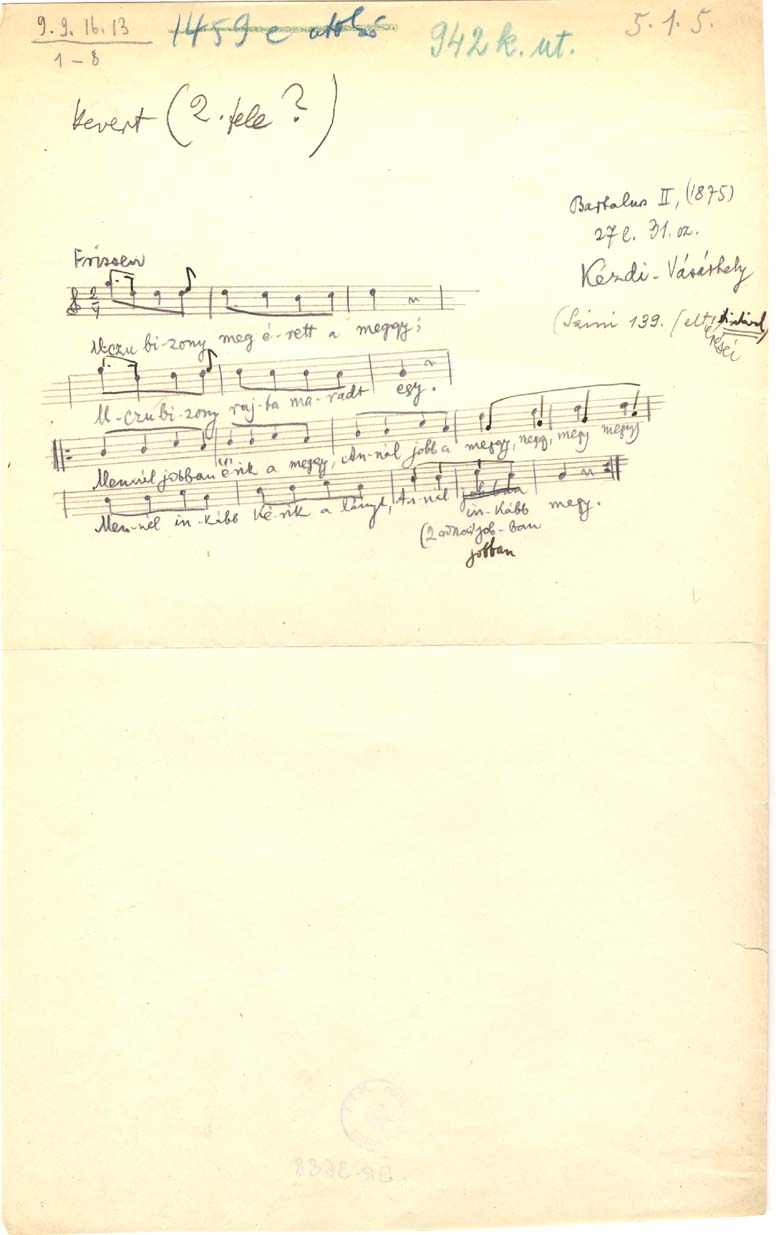 9. 9. 16. 13
1 - 8
1459 e utolsó
942 k. ut.
5. 1. 5.
Kevert (2. fele?)
Bartalus II, (1875)
27 l. 31. sz.
Kézdi-Vásárhely
(Szini 139.
Frissen
2/4
U-czu bi-zony meg é-rett a meggy;
U-czu bi-zony raj-ta ma-radt egy.
Mennél jobban érik a meggy, An-nál jobb a meggy, meggy, meggy meggy
Men-nél in-kább ké-rik a lányt, An-nál
in-kább megy.
job-ban
jobban
DR-3688